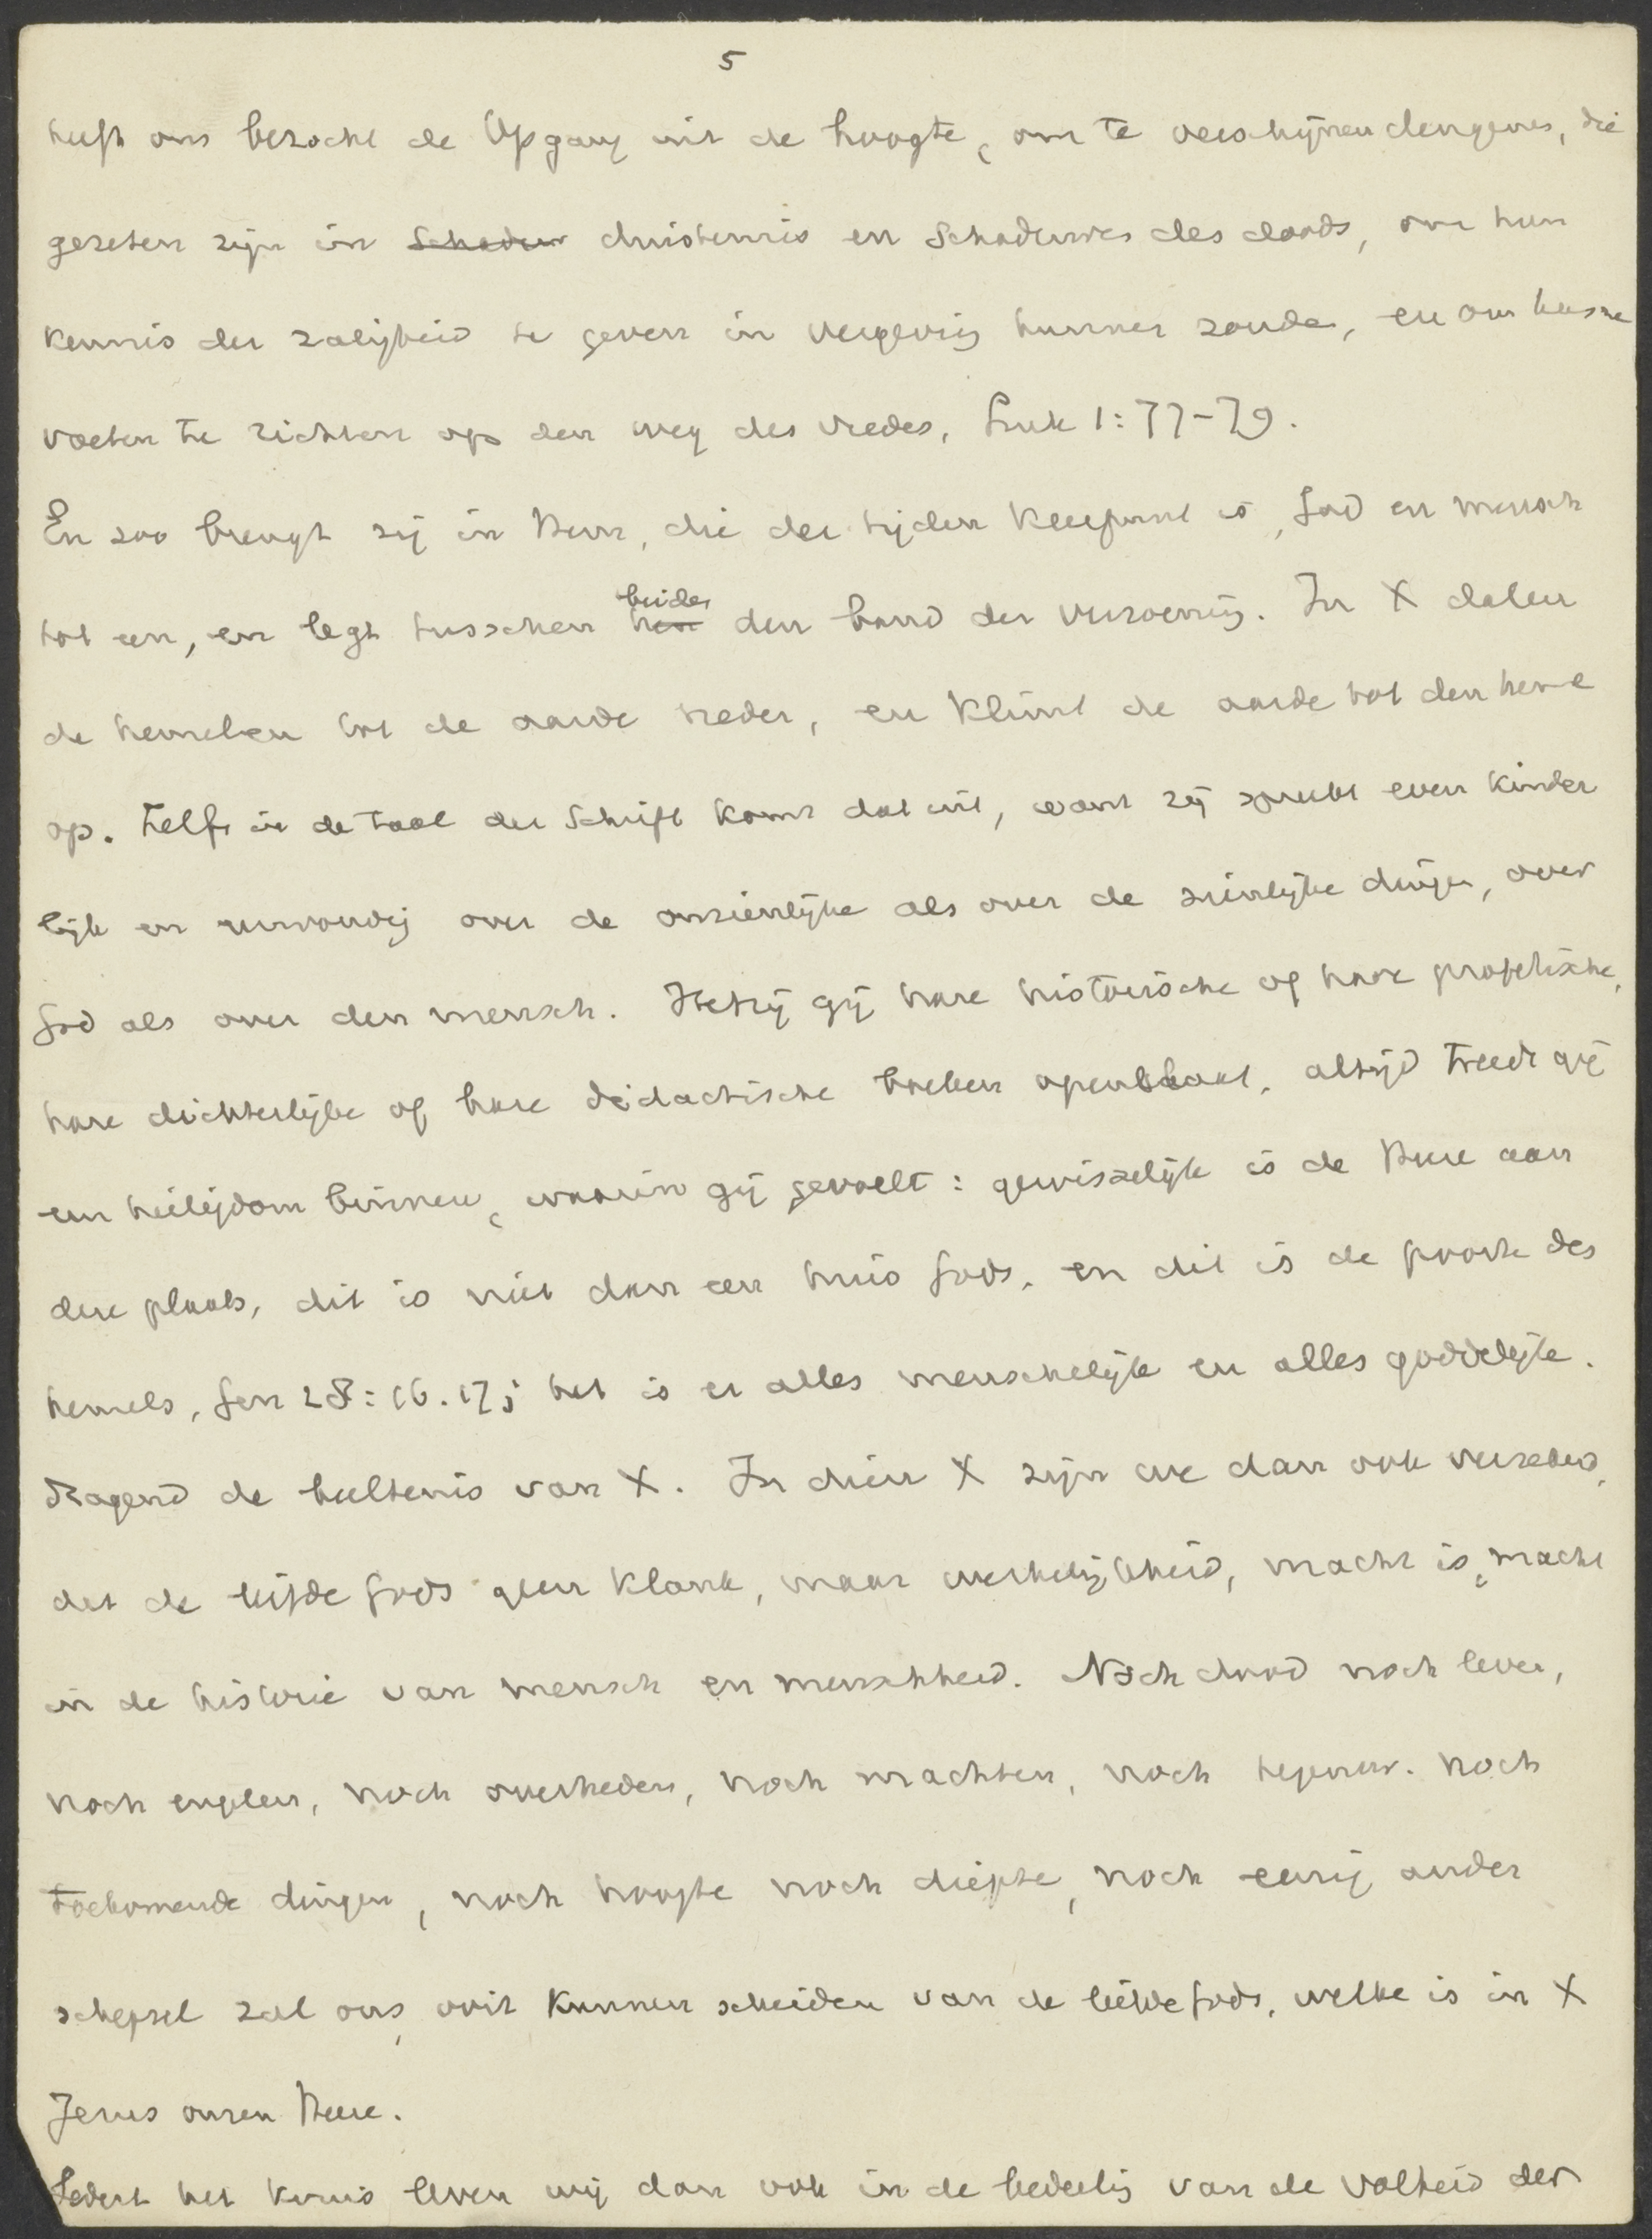 5
heeft ons bezocht de Opgang uit de hoogte, om te verschijnen dengenen, die
gezeten zijn in schaduw duisternis en schaduwe des doods, om hun
kennis der zaligheid te geven in vergeving hunner zonden, en om hunne
voeten te richten op den weg des vredes, Luk 1:77-79.
En zoo brengt zij in Hem, die der tijden keerpunt is, God en mensch
tot een, en legt tusschen hen beider den band der verzoening. In X dalen
de hemelen tot de aarde neder, en klimt de aarde tot den heme
op. Zelfs in de taal der Schrift komt dat uit, want zij spreekt even kinder
lijk en eenvoudig over de onzienlijke als over de zienlijke dingen, over
God als over den mensch. Hetzij gij hare historische of hare profetische,
hare dichterlijke of hare didactische boeken openslaat, altijd treedt gij
een heiligdom binnen, waarin gij gevoelt: gewisselijk is de Heere aan
deze plaats, dit is niet dan een huis Gods, en dit is de poorte des
hemels, Gen 28:16.17; het is er alles menschelijk en alles goddelijk.
Dragend de beeltenis van X. In dien X zijn we dan ook verzekerd,
dat de liefde Gods geen klank, maar werkelijkheid, macht is, macht
in de historie van mensch en menschheid. Noch dood noch leven,
noch engelen, noch overheden, noch machten, noch tegenw. noch
toekomende dingen, noch hoogte noch diepte, noch eenig ander
schepsel zal ons ooit kunnen scheiden van de liefde Gods, welke is in X
Jezus onzen Heere.
Sedert het kruis leven wij dan ook in de bedeeling van de volheid der